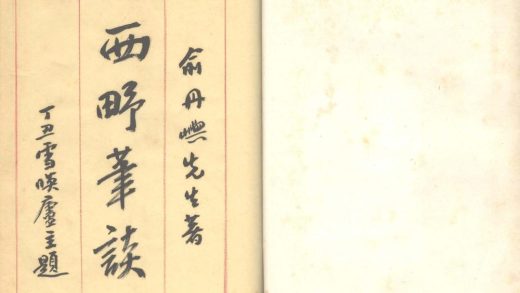 俞丹嶼先生著
西野筆談
丁丑雪暎廬主題